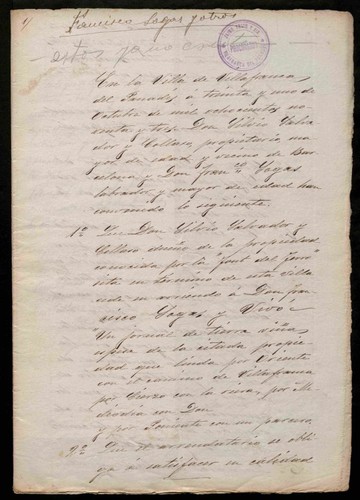 Francisco Sogas y otros
En la Villa de Villafranca
del Panadés, á treinta y uno de
Octubre de mil ochocientos no-
venta y tres. Don Silvio Salva-
dor y Collaso, propietario ma-
yor de edad y vecino de Bar-
celona y Don Fran.co Sogas
labrador y mayor de edad han
convenido lo siguiente.
1º Que Don Silvio Salvador y
Collaso dueño de la propiedad
conocida por la "font del
en termino de esta villa
en arriendo á Don Fran-
cisco Sogas y Vivó
Un jornal de tierra viña
de la citada propie-
dad que linda por Oriente
con el camino de Villafranca
por con la riera, por Me-
diodia con Don
y por Poniente con un parcero.
2º Que el arrendatario se obli-
ga á satisfacer en calidad